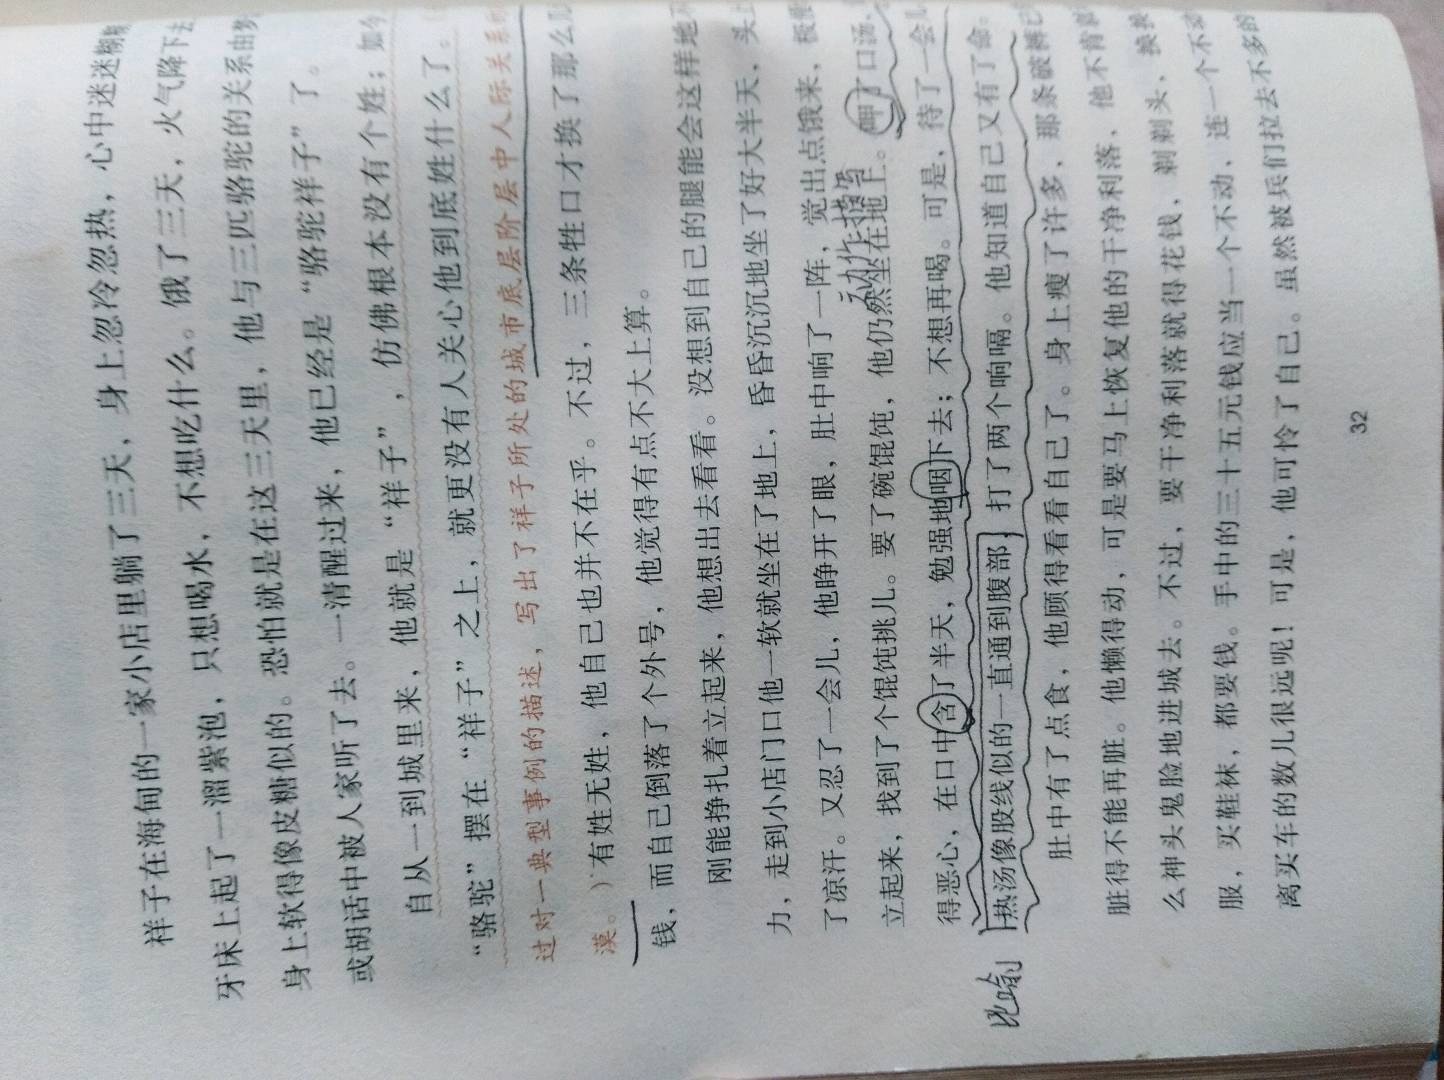 祥子在海甸的一家小店里躺了三天，身上忽冷忽热，心中迷迷糊糊
牙床上起了一溜紫泡，只想喝水，不想吃什么。饿了三天，火气降下去
身上软得像皮糖似的。恐怕就是在这三天里，他与三匹骆驼的关系由梦
或胡话中被人家听了去。一清醒过来，他已经是“骆驼祥子”了。
自从一到城里来，他就是“祥子”，仿佛根本没有个姓；如今
“骆驼”摆在“祥子”之上，就更没有人关心他到底姓什么了。
过对一典型事例的描述，写出了祥子所处的城市底层阶层中人际关系的
漠。）有姓无姓，他自己也并不在乎。不过，三条牲口才换了那么几
钱，而自己倒落了个外号，他觉得有点不大上算。
刚能挣扎着立起来，他想出去看看。没想到自己的腿能会这样地不
力，走到小店门口他一软就坐在了地上，昏昏沉沉地坐了好大半天，头上
了凉汗。又忍了一会儿，他睁开了眼，肚中响了一阵，觉出点饿来，极慢
动作描写
立起来，找到了个馄饨挑儿。要了碗馄饨，他仍然坐在地上。呷了口汤，
得恶心，在口中含了半天，勉强地咽下去；不想再喝。可是，待了一会儿
比喻
热汤像股线似的一直通到腹部，打了两个响嗝。他知道自己又有了命。
肚中有了点食，他顾得看看自己了。身上瘦了许多，那条破裤已
脏得不能再脏。他懒得动，可是要马上恢复他的干净利落，他不肯就
么神头鬼脸地进城去。不过，要干净利落就得花钱，剃剃头，换换
服，买鞋袜，都要钱。手中的三十五元钱应当一个不动，连一个不动
离买车的数儿很远呢！可是，他可怜了自己。虽然被兵们拉去不多的
32